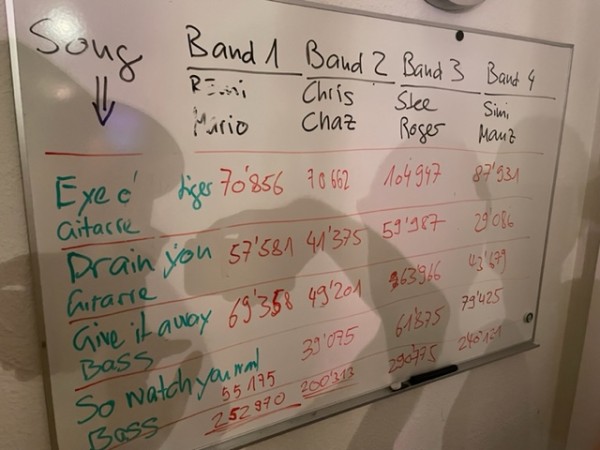 Song Band 1 Band 2 Band 3 Band 4
Remi Chris Slee Simi
Mario Chaz Roger Manz
Eye o' tiger 70'856 70662 104'947 87'931
Gitarre
Drain you 57'581 41'375 59'987 29'086
Gitarre
Give it away 69'358 49'201 63'966 43'679
Bass
So watch you want 55175 39'075 61'875 79'425
Bass 252970 200'313 290'775 240'121